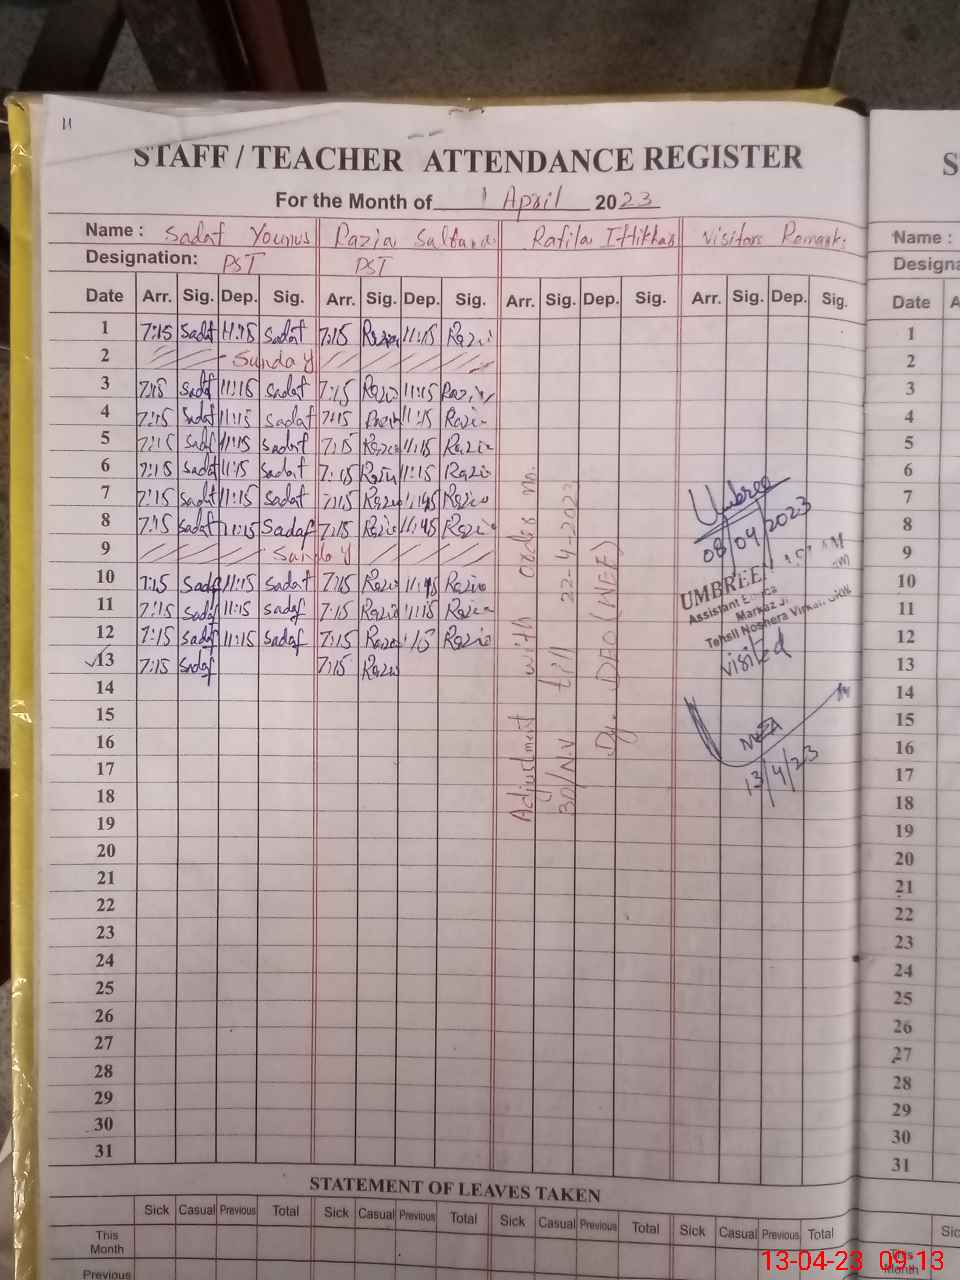 11
STAFF / TEACHER ATTENDANCE REGISTER
For the Month of April 2023
Name : Sadaf Younus Razia Sultana Rafila Iftikhar Visitors Remarks
Designation: PST PST
Date Arr. Sig. Dep. Sig. Arr. Sig. Dep. Sig. Arr. Sig. Dep. Sig. Arr. Sig. Dep. Sig.
1 7:15 Sadaf 11:15 Sadaf 7:15 Razia 11:15 Razia
2 Sunday
3 7:15 Sadaf 11:15 Sadaf 7:15 Razia 11:15 Razia
4 7:15 Sadaf 11:15 Sadaf 7:15 11:15 Razia
5 7:15 Sadaf 11:15 Sadaf 7:15 Razia 11:15 Razia
6 7:15 Sadaf 11:15 Sadaf 7:15 Razia 11:15 Razia
7 7:15 Sadaf 11:15 Sadaf 7:15 Razia 11:45 Razia
8 7:15 Sadaf 11:15 Sadaf 7:15 Razia 11:45 Razia
9 Sunday
10 7:15 Sadaf 11:15 Sadaf 7:15 Razia 11:45 Razia
11 7:15 Sadaf 11:15 Sadaf 7:15 Razia 11:15 Razia
12 7:15 Sadaf 11:15 Sadaf 7:15 Razia Razia
13 7:15 Sadaf 7:15 Razia
14
15
16
17
18
19
20
21
22
23
24
25
26
27
28
29
30
31
Adjustment with order no.
30/N.V till 22-4-2023
Dy. DEO (WEE)
Umbree
08/04/2023
UMBREEN
Assistant
Markaz
Tehsil Noshera Virkan
visited
MEA
13/4/23
STATEMENT OF LEAVES TAKEN
Sick Casual Previous Total Sick Casual Previous Total Sick Casual Previous Total Sick Casual Previous Total
This Month
Previous
S
Name :
Designa
Date A
1
2
3
4
5
6
7
8
9
10
11
12
13
14
15
16
17
18
19
20
21
22
23
24
25
26
27
28
29
30
31
Sic
This Month
13-04-23 09:13